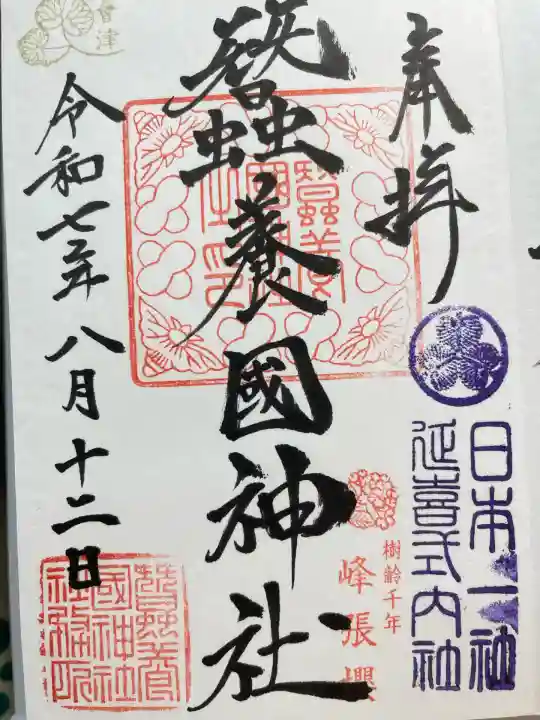 奉拝
日本一社
延喜式内社
樹齢千年
峰張櫻
蠶養國神社
會津
令和七年八月十二日
蠶養國神社務所